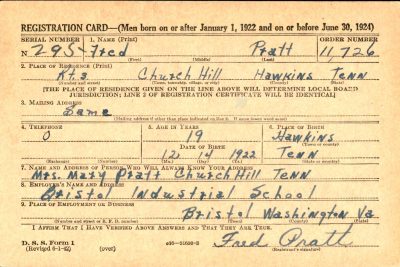 REGISTRATION CARD—(Men born on or after January 1, 1922 and on or before June 30, 1924)
SERIAL NUMBER 1. NAME (Print) ORDER NUMBER
N 295 Fred Pratt 11,726
(First) (Middle) (Last)
2. PLACE OF RESIDENCE (Print)
Rt. 3 Church Hill Hawkins Tenn
(Number and street) (Town, township, village, or city) (County) (State)
[THE PLACE OF RESIDENCE GIVEN ON THE LINE ABOVE WILL DETERMINE LOCAL BOARD
JURISDICTION; LINE 2 OF REGISTRATION CERTIFICATE WILL BE IDENTICAL]
3. MAILING ADDRESS
Same
(Mailing address if other than place indicated on line 2. If same insert word same)
4. TELEPHONE 5. AGE IN YEARS 6. PLACE OF BIRTH
0 19 Hawkins
DATE OF BIRTH (Town or county)
12 14 1922 Tenn
(Mo.) (Day) (Yr.) (State or country)
7. NAME AND ADDRESS OF PERSON WHO WILL ALWAYS KNOW YOUR ADDRESS
Mrs. Mary Pratt Church Hill Tenn
8. EMPLOYER'S NAME AND ADDRESS
Bristol Industrial School
9. PLACE OF EMPLOYMENT OR BUSINESS
Bristol Washington Va
(Number and street or R. F. D. number) (Town) (County) (State)
I AFFIRM THAT I HAVE VERIFIED ABOVE ANSWERS AND THAT THEY ARE TRUE.
D. S. S. Form 1
(Revised 6-1-42) (over) Fred Pratt